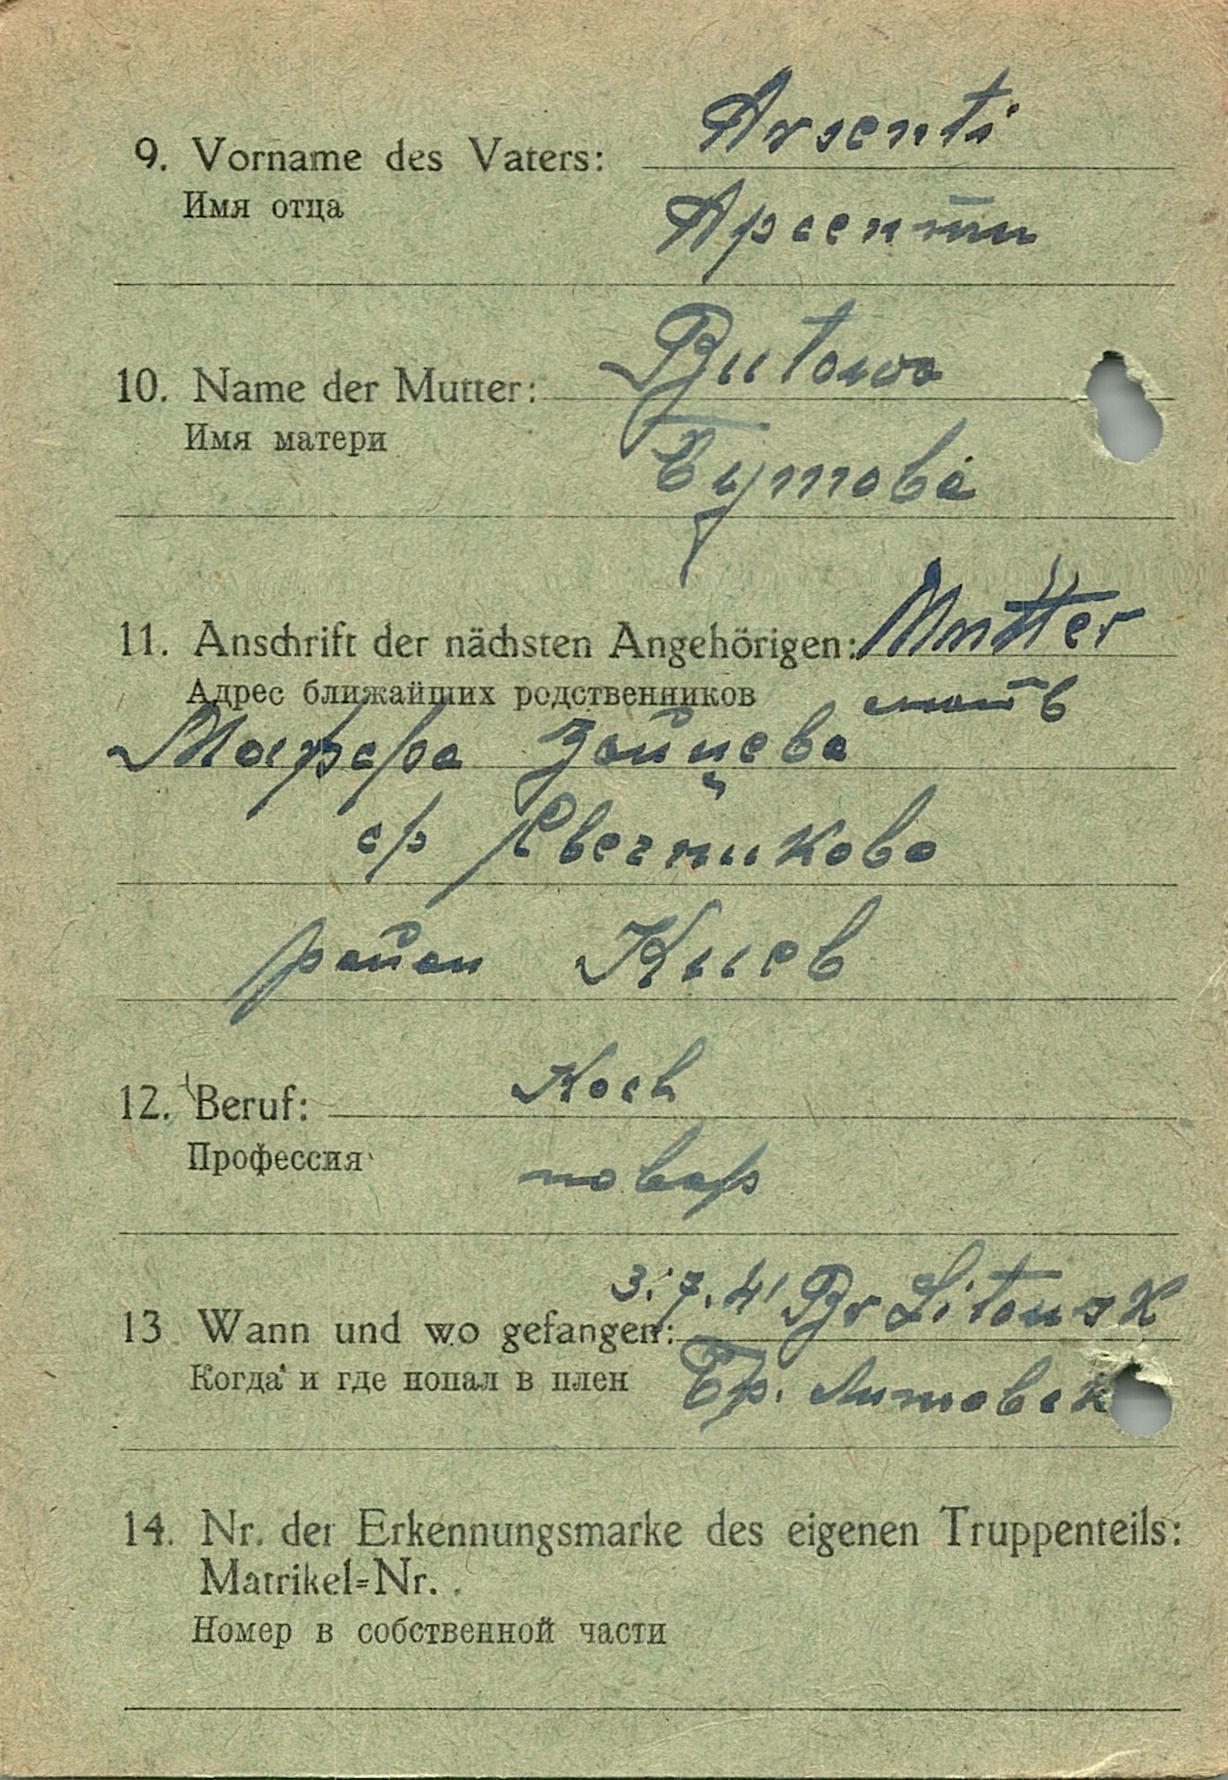 9. Vorname des Vaters: Arsenti
Имя отца Арсенти
10. Name der Mutter: Butowa
Имя матери Бутова
11. Anschrift der nächsten Angehörigen: Mutter
Адрес ближайших родственников мать
Зайцева
район Киев
12. Beruf: Koch
Профессия повар
13 Wann und wo gefangen: 3.7.41 Br Litowsk
Когда и где попал в плен Бр. Литовск
14. Nr. der Erkennungsmarke des eigenen Truppenteils:
Matrikel=Nr.
Номер в собственной части